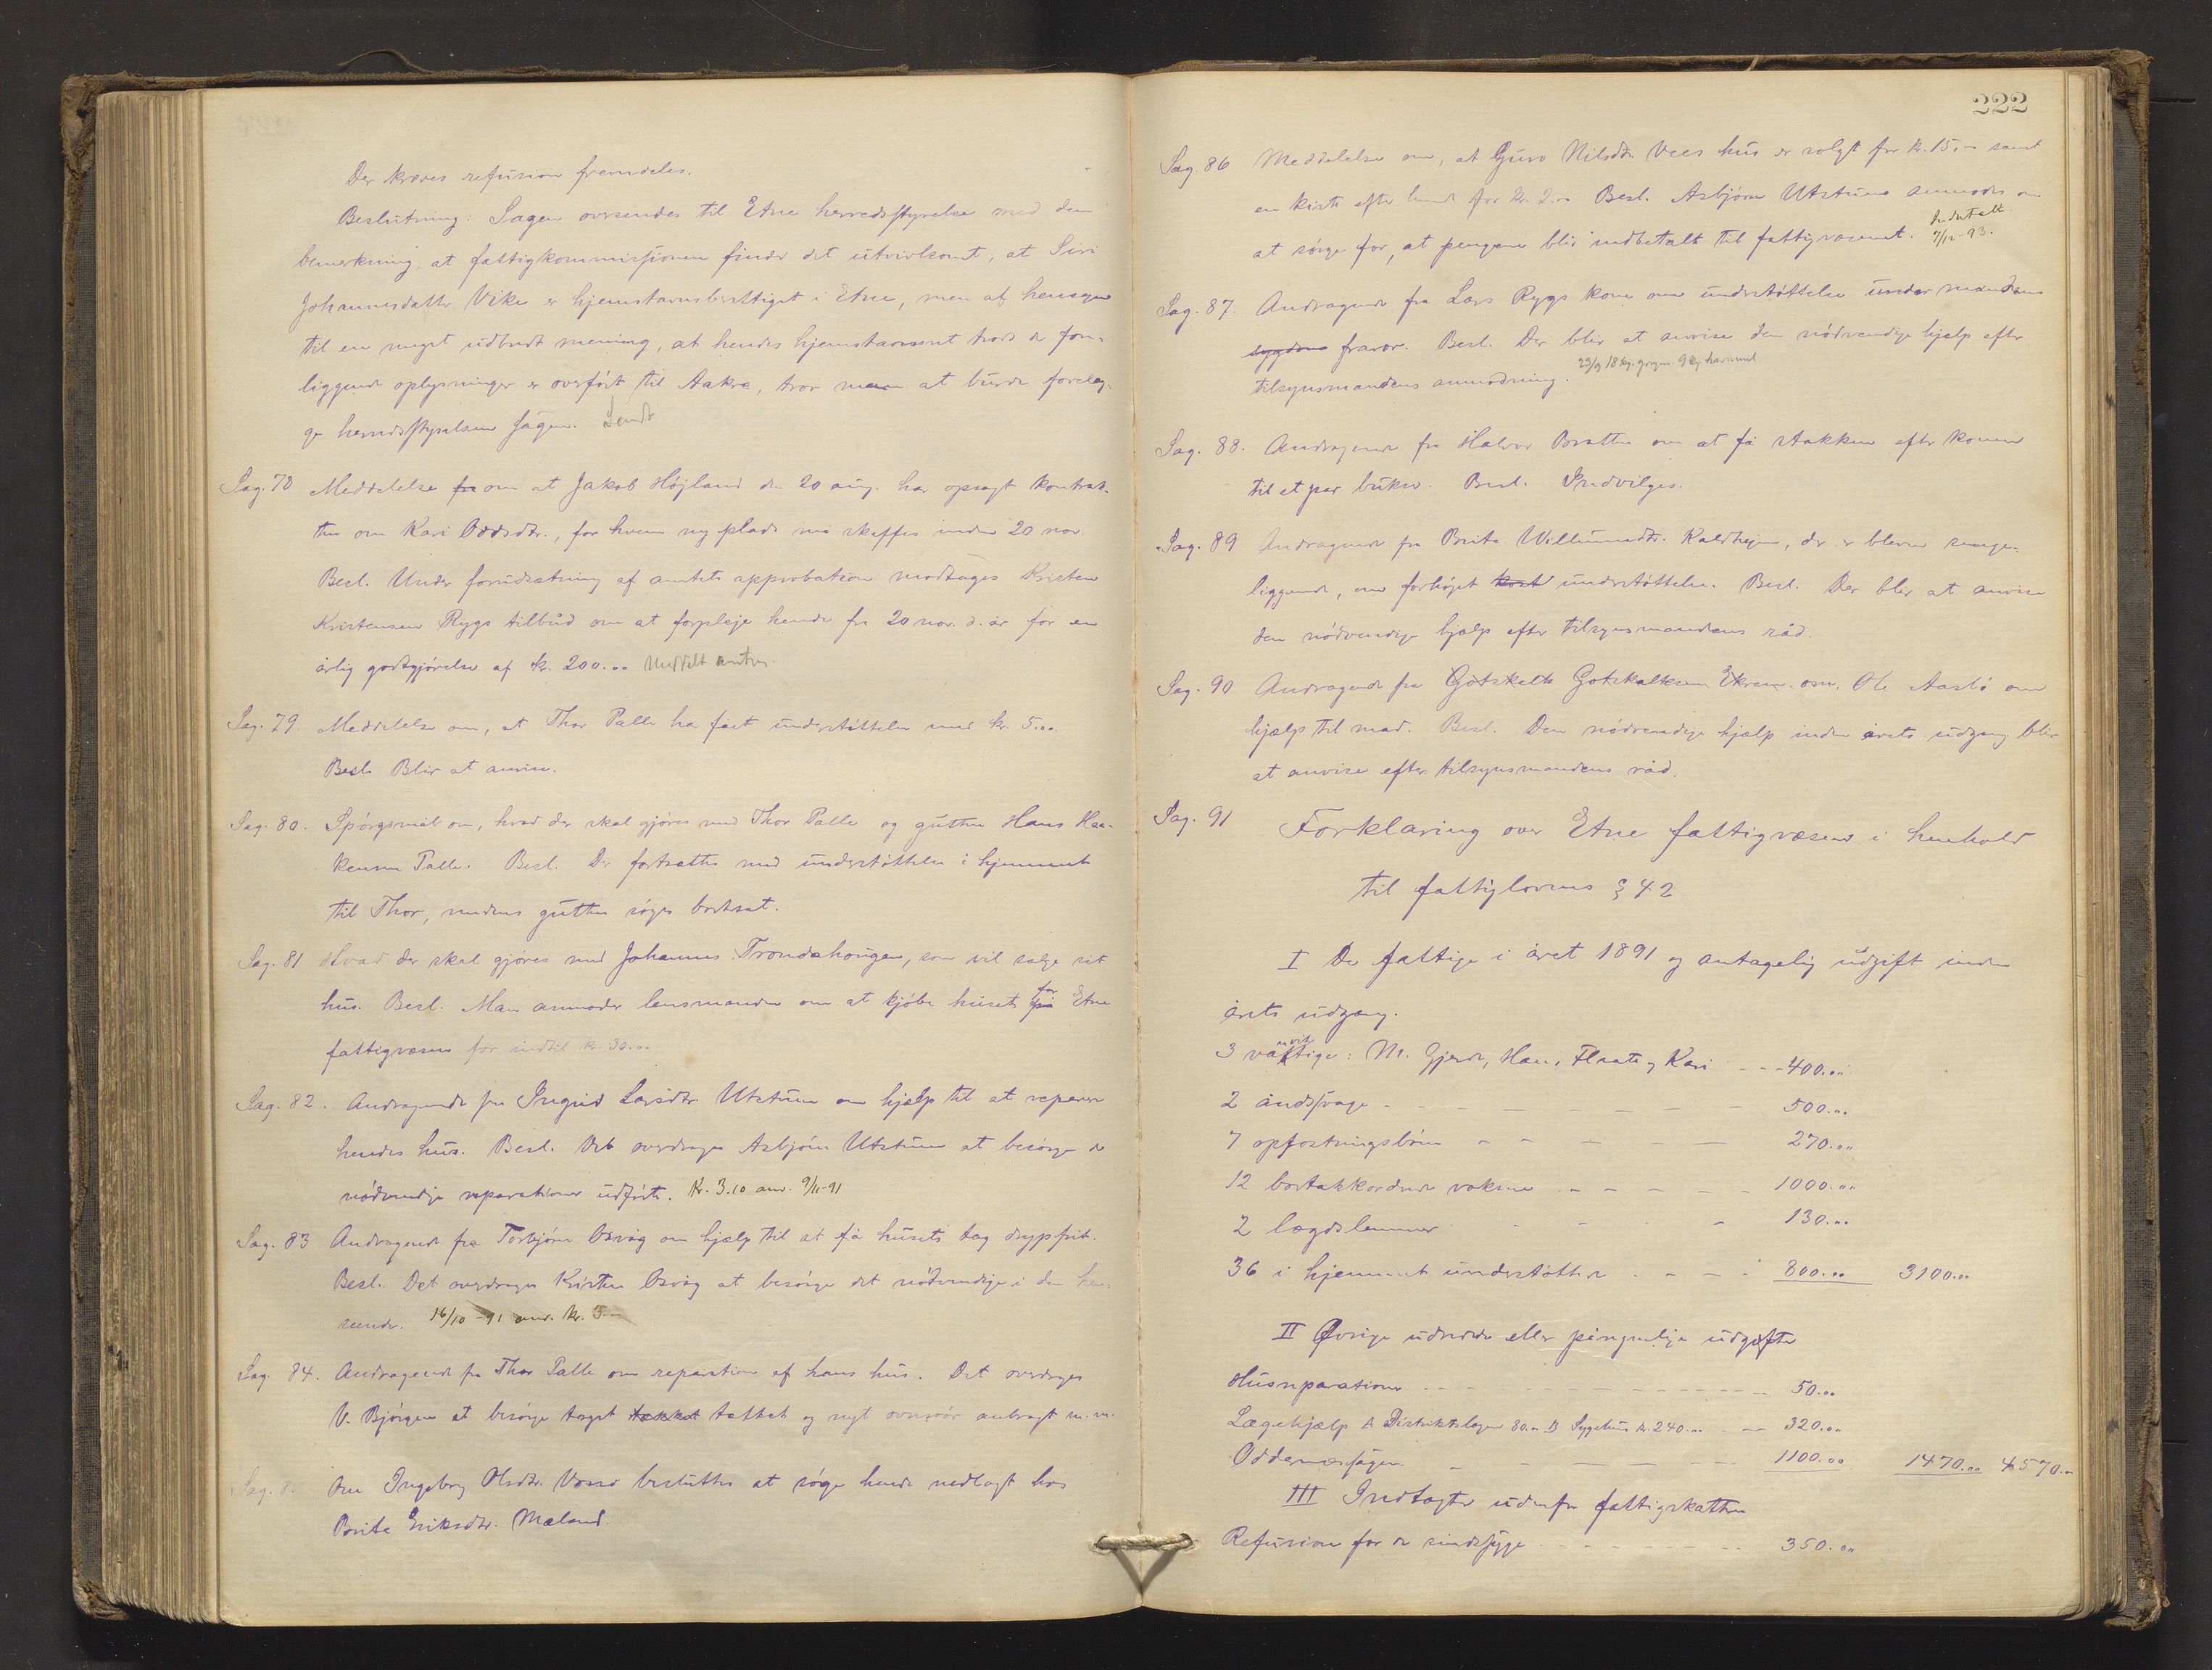 Der kræves refusion fremdeles.
Beslutning: Sagen oversendes til Etne herredsstyrelse med den
bemerkning, at fattigkommissionen finder det utvivlsomt, at Siri
Johannesdatter Vike er hjemstavnsberettiget i Etne, men af hensyn
til en meget udbredt mening, at hendes hjemstavnsret trods de fore-
liggende oplysninger er overført til Aakre, tror man at burde forelæg-
ge herredsstyrelsen sagen. Sendt
Sag. 78 Meddelelse fra om at Jakob Højland den 20 aug. har opsagt kontrak-
ten om Kari Oddsdtr., for hvem ny plads må skaffes inden 20 nov.
Besl. Under forudsætning af amtets approbation modtages Kristen
Kristensen Rygs tilbud om at forpleje hende fra 20 nov. d. år for en
årlig godtgjørelse af kr. 200.00 Meddelt
Sag. 79. Meddelelse om, at Thor Palle har fået understøttelse med kr. 5.00
Besl. Blir at anvise.
Sag. 80. Spørgsmål om, hvad der skal gjøres med Thor Palle og gutten Hans Haa-
kensen Palle. Besl. Der fortsættes med understøttelse i hjemmet
til Thor, medens gutten søges bortsat.
Sag. 81 Hvad der skal gjøres med Johannes Trondshougen, som vil sælge sit
hus. Besl. Man anmoder lensmanden om at kjøbe huset på for Etne
fattigvæsen for indtil kr. 30.00
Sag. 82. Andragende fra Ingrid Larsdtr. Utstuen om hjælp til at reparere
hendes hus. Besl. Det overdrages Asbjørn Utstuen at besørge de
nødvendige reparationer udført. Kr. 3.10 anv. 9/11-91
Sag. 83 Andragende fra Torbjørn Osvåg om hjælp til at få husets tag drypfrit.
Besl. Det overdrages Kristen Osvåg at besørge det nødvendige i den hen-
seende. 16/10-91 anv. kr. 5.00
Sag. 84. Andragende fra Thor Palle om reparation af hans hus. Det overdrages
V. Bjørgen at besørge taget tækket tættet og nyt ovnsrör anbragt m.m.
Sag. 8 Om Ingeborg Olsdtr. besluttes at søge hende nedlagt hos
Brite Eriksdtr. Mæland.
222
Sag. 86 Meddelelse om, at Guro Nilsdtr. Vees hus er solgt for kr. 15.00 samt
en kiste efter hende for kr. 2.00 Besl. Asbjørn Utstuen anmodes om
at sørge for, at pengene blir indbetalt til fattigvæsenet. Indbetalt 7/12-93.
Sag. 87. Andragende fra Lars Rygs kone om understøttelse under mandens
sygdom fravær. Besl. Der blir at anvise den nødvendige hjelp efter
tilsynsmandens anmodning. 23/9 18 kg. grgn. 9 kg havremel
Sag. 88. Andragende fra Halvor Bratten om at få stakken efter konen
til et par bukser. Besl. Indvilges.
Sag. 89 Andragende fra Brite Willumsdtr. Kaldheim, der er bleven senge-
liggende, om forhøjet kost understøttelse. Besl. Der blir at anvise
den nødvendige hjælp efter tilsynsmandens råd.
Sag. 90 Andragende fra Götskalk Gotskalksen Ekren om. Ole om
hjælp til mad. Besl. Den nødvendige hjælp inden årets udgang blir
at anvise efter tilsynsmandens råd.
Sag. 91 Forklaring over Etne fattigvæsen i henhold
til fattiglovens § 42
I De fattige i året 1891 og antagelig udgift inden
årets udgang.
3 : M. Gjerde, Hans Flaate og Kari - - - 400.00
2 åndssvage - - - 500.00
7 opfostringsbørn - - - 270.00
12 bortakkorderede voksne - - - 1000.00
2 lægdslemmer - - - 130.00
36 i hjemmet understøttede - - - 800.00 3100.00
II Øvrige udredede eller påregnelige udgifter
Husreparationer - - - 50.00
Lægehjælp A Distriktslægen 80.00 B Sygehus kr. 240.00 - - 320.00
Oddernessagen - - - 1100.00 1470.00 4570.00
III Indtægter udenfor fattigskatten
Refusion for de sindssyge - - - 350.00